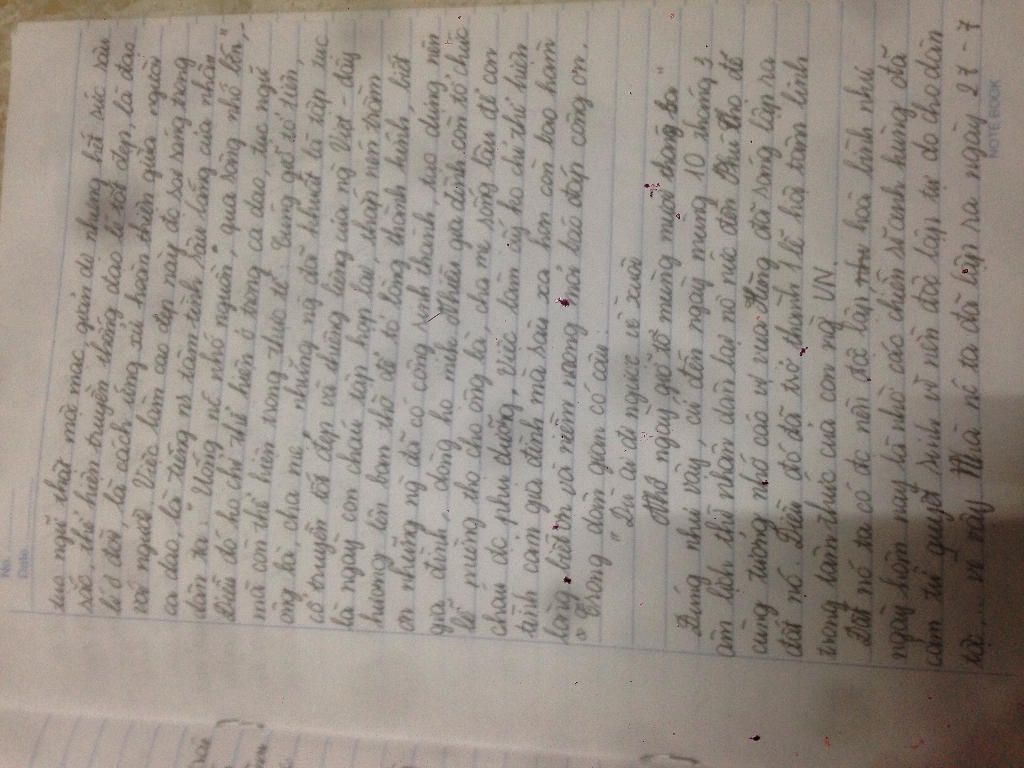 No.
Date.
tục ngữ thật mộc mạc, giản dị nhưng hết sức sâu
sắc, thể hiện truyền thống đạo lí tốt đẹp, là đạo
lí ở đời, là cách sống xử hoàn thiện giữa người
với người. Việc làm cao đẹp này đc soi sáng trong
ca dao, là tiếng ns tâm tình sâu lắng của nhân
dân ta. Uống nc nhớ nguồn", qua sông nhớ bến,"
Điều đó ko chỉ thể hiện ở trong ca dao, tục ngữ
mà còn thể hiện trong thực tế. Cúng giỗ tổ tiên,
ông bà, cha mẹ, những ng đã khuất là tập tục
cổ truyền tốt đẹp và thiêng liêng của ng Việt - đây
là ngày con cháu tập hợp lại, thắp nén trầm
hương lên ban thờ để tỏ lòng thành kính, biết
ơn những ng đã có công sinh thành, tạo dựng nên
gia đình, dòng họ mình. Nhiều gia đình còn tổ chức
lễ mừng thọ cho ông bà, cha mẹ sống lâu để con
cháu đc phụ dưỡng, việc làm ấy ko chỉ thể hiện
tình cảm gia đình mà sâu xa hơn còn bao hàm
lòng biết ơn và niềm mong mỏi báo đáp công ơn.
Trong dân gian có câu:
"Dù ai đi ngược về xuôi
Nhớ ngày giỗ tổ mùng mười tháng ba"
Đúng như vậy, cứ đến ngày mùng 10 tháng 3
âm lịch thì nhân dân lại nô nức đến Phú Thọ để
cùng tưởng nhớ các vị vua Hùng đã sáng lập ra
đất nc. Điều đó đã trở thành 1 lễ hội tâm linh
trong tâm thức của con ng VN.
Đất nc ta có đc nền độc lập hoà bình như
ngày hôm nay là nhờ các chiến sĩ anh hùng đã
cảm tử quyết sinh vì nền độc lập tự do cho dân
tộc,.... vì vậy Nhà nc ta đã lập ra ngày 27 - 7
NOTE BOOK